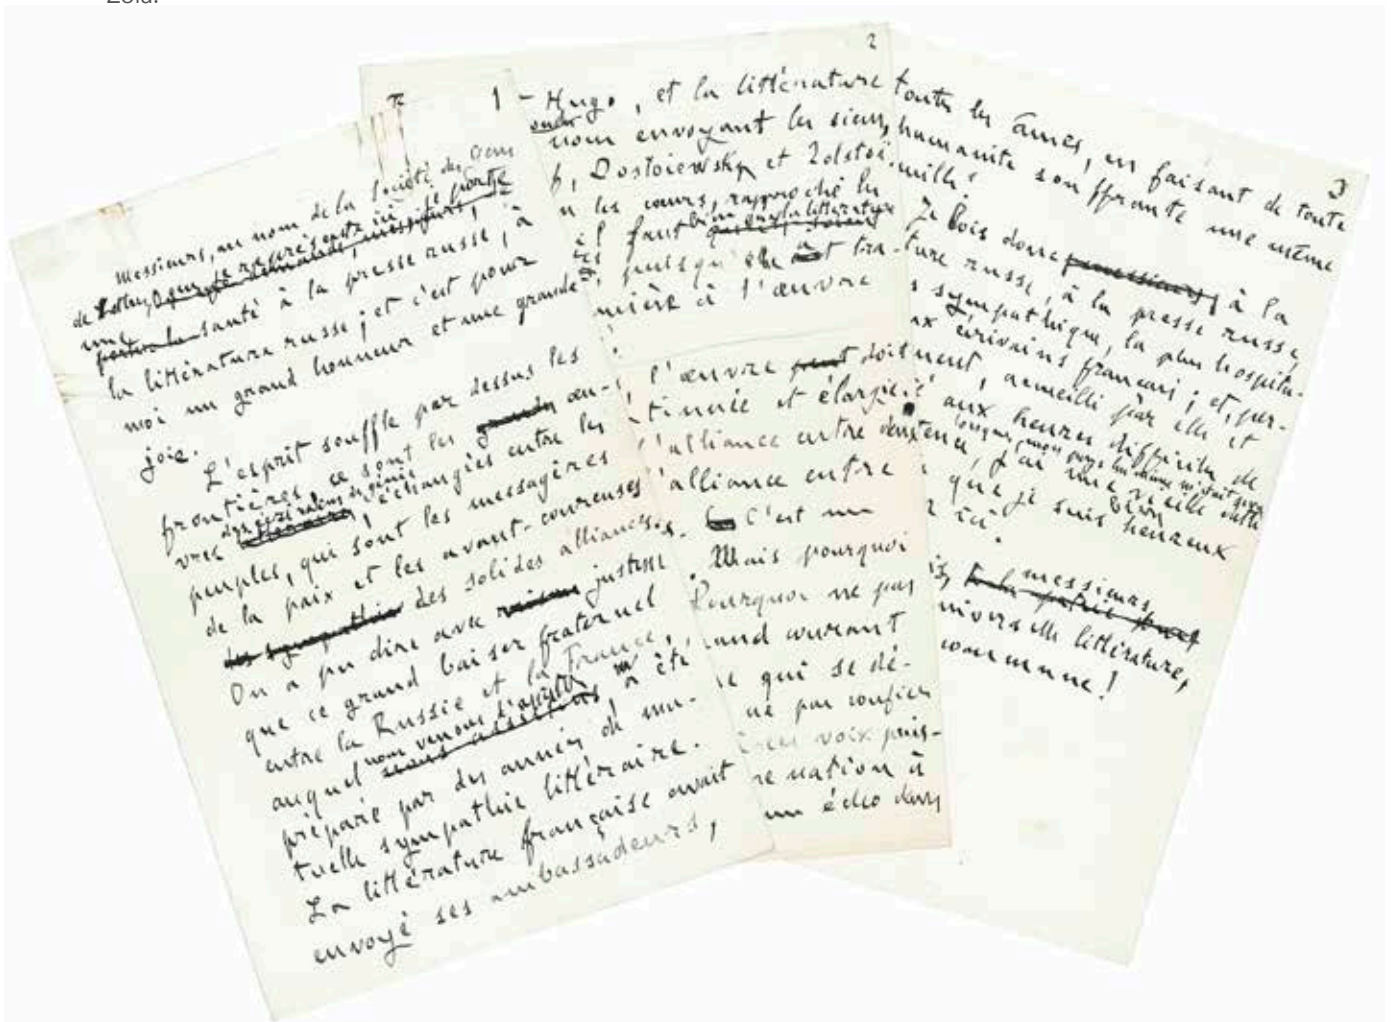 Zola.
1
Messieurs, au nom de la Société des Gens
de Lettres, que je représente ici, je porte
une santé à la presse russe, à
la littérature russe ; et c'est pour
moi un grand honneur et une grande
joie.
L'esprit souffle par dessus les
frontières, ce sont les œu-
vres échangées entre les
peuples, qui sont les messagères
de la paix et les avant-coureuses
des solides alliances.
On a pu dire avec justesse
que ce grand baiser fraternel
entre la Russie et la France,
auquel nous venons d'assister, a été
préparé par des années de mu-
tuelle sympathie littéraire.
La littérature française avait
envoyé ses ambassadeurs,
2
Hugo, et la littérature
nous envoyant les siens,
, Dostoiewsky et Tolstoï.
les cœurs, rapproché les
il faut bien que la littérature
, puisqu'elle a tra-
mière à l'œuvre
l'œuvre doit
tinuée et élargie.
l'alliance entre
l'alliance entre
C'est un
. Mais pourquoi
Pourquoi ne pas
courant
qui se dé-
pas confier
voix puis-
nation à
un écho dans
3
toutes les âmes, en faisant de toute
humanité souffrante une même
mille.
Je bois donc à la
ture russe, à la presse russe,
sympathique, la plus hospita-
ux écrivains français ; et, per-
ment, accueilli par elle et
aux heures difficiles de
lorsque mon pays lui-même
tence, j'ai une vieille dette
que je suis bien heureux
ici.
messieurs,
universelle littérature,
commune !